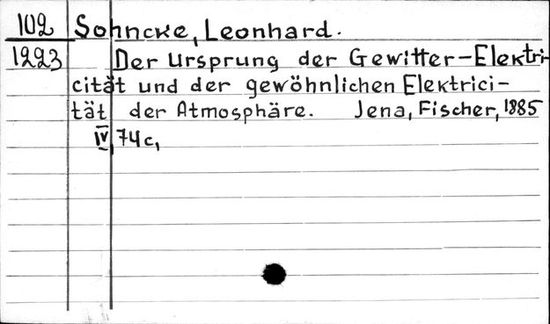 102 Sohncke, Leonhard.
1223 Der Ursprung der Gewitter-Elektri-
cität und der gewöhnlichen Elektrici-
tät der Atmosphäre. Jena, Fischer, 1885
IV, 74 c,